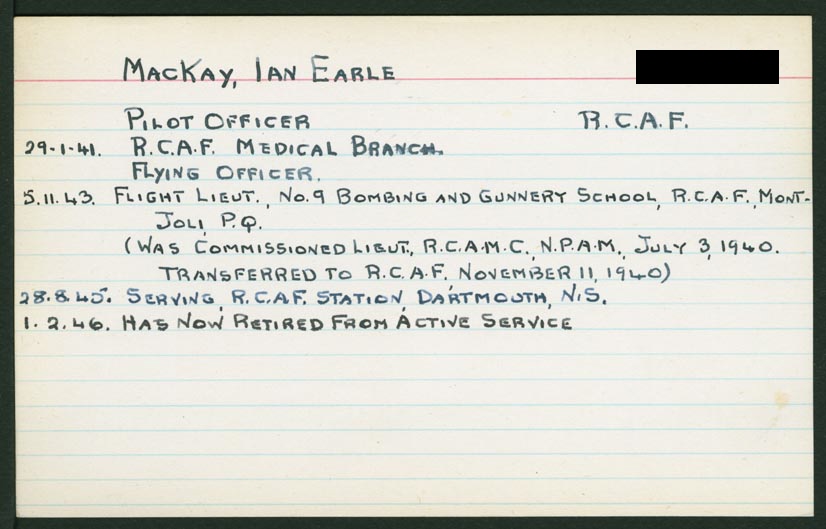 MacKay, Ian Earle
Pilot Officer R.C.A.F.
29.1.41. R.C.A.F. Medical Branch.
Flying Officer.
5.11.43. Flight Lieut., No.9 Bombing and Gunnery School, R.C.A.F., Mont-
Joli, P.Q.
(Was Commissioned Lieut., R.C.A.M.C., N.P.A.M., July 3, 1940.
Transferred to R.C.A.F., November 11, 1940)
28.8.45. Serving, R.C.A.F. Station, Dartmouth, N.S.
1.2.46. Has Now Retired From Active Service